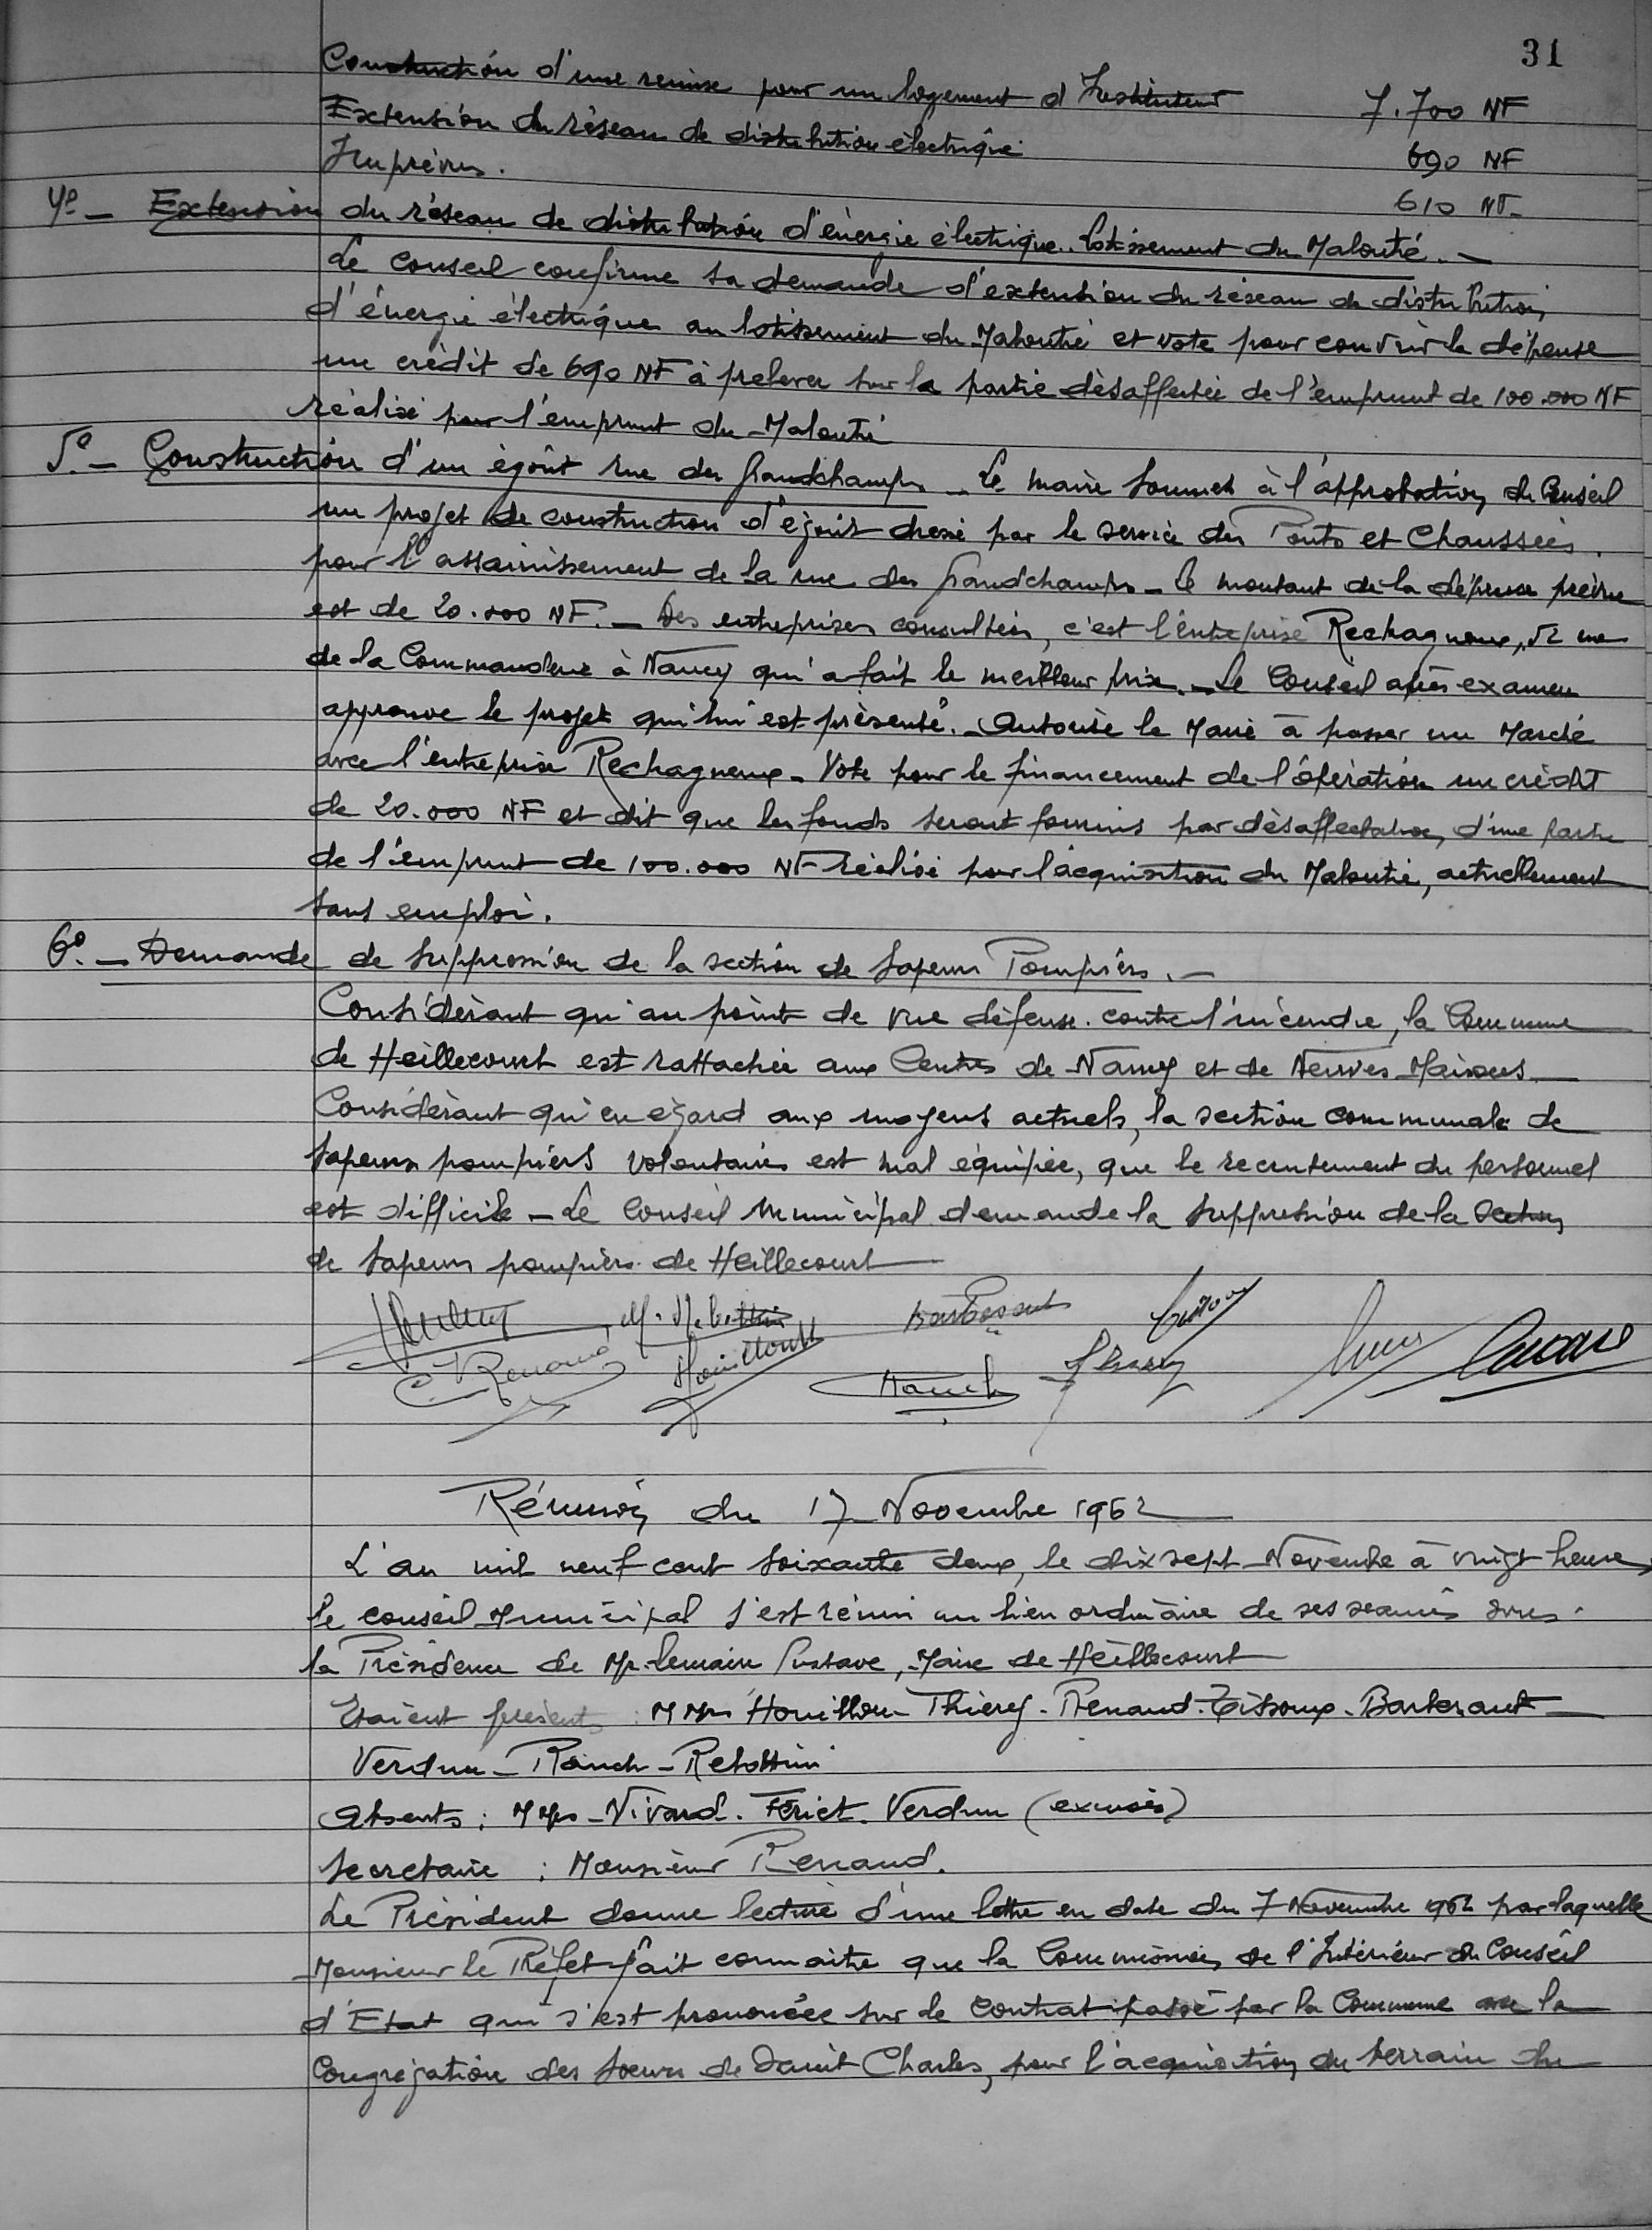 31
Construction d'une remise pour un logement d'Instituteur 7.700 NF
Extension du réseau de distribution électrique 690 NF
Imprévus. 610 NF
4º - Extension du réseau de distribution d'énergie électrique. Lotissement du Maloutié. -
Le Conseil confirme sa demande d'extension du réseau de distribution
d'énergie électrique au lotissement du Maloutié et vote pour couvrir la dépense
un crédit de 690 NF à prelever sur la partie désaffectée de l'emprunt de 100.000 NF
réalisé pour l'emprunt du Maloutié
5º. - Construction d'un égoût rue des Grandchamps - Le maire soumet à l'approbation du Conseil
un projet de construction d'égoûts dressé par le service des Ponts et Chaussées.
pour l'assainissement de la rue des Grandchamps - Le montant de la dépense prévue
est de 20.000 NF. - Des entreprises consultées, c'est l'entreprise Rechagneux, 52 rue
de la Commanderie à Nancy qui a fait le meilleur prix. - Le Conseil après examen
approuve le projet qui lui est présenté. - Autorise le Maire à passer un Marché
avec l'entreprise Rechagneux - Vote pour le financement de l'opération un crédit
de 20.000 NF et dit que les fonds seront fournis par désaffectation, d'une partie
de l'emprunt de 100.000 NF réalisé pour l'acquisition du Maloutié, actuellement
sans emploi.
6º. - Demande de suppression de la section de Sapeurs Pompiers. -
Considérant qu'au point de vue défense contre l'incendie, la Commune
de Heillecourt est rattachée aux Centres de Nancy et de Neuves-Maisons
Considérant qu'en égard aux moyens actuels, la section communale de
Sapeurs pompiers volontaires est mal équipée, que le recrutement du personnel
est difficile - Le Conseil Municipal demande la suppression de la section
de Sapeurs pompiers de Heillecourt
Renaud Houillon
Réunion du 17 Novembre 1962
L'an mil neuf cent soixante deux, le dix sept Novembre à vingt heures
le conseil Municipal s'est réuni au lieu ordinaire de ses séances sous
la Présidence de Mr Lemaire Gustave, Maire de Heillecourt
Etaient présents : MMrs Houillon - Thiery - Renaud - Tissoux - Barberant
Verdun - Rauch - Rebottini
Absents : MMrs - Vivard. Fériet. Verdun (excusés)
Secretaire : Monsieur Renaud.
Le Président donne lecture d'une lettre en date du 7 Novembre 1962 par laquelle
Monsieur le Préfet fait connaître que la Commission de l'Intérieur du Conseil
d'Etat qui s'est prononcée sur le contrat passé par la Commune avec la
Congrégation des Soeurs de Saint Charles, pour l'acquisition du terrain du